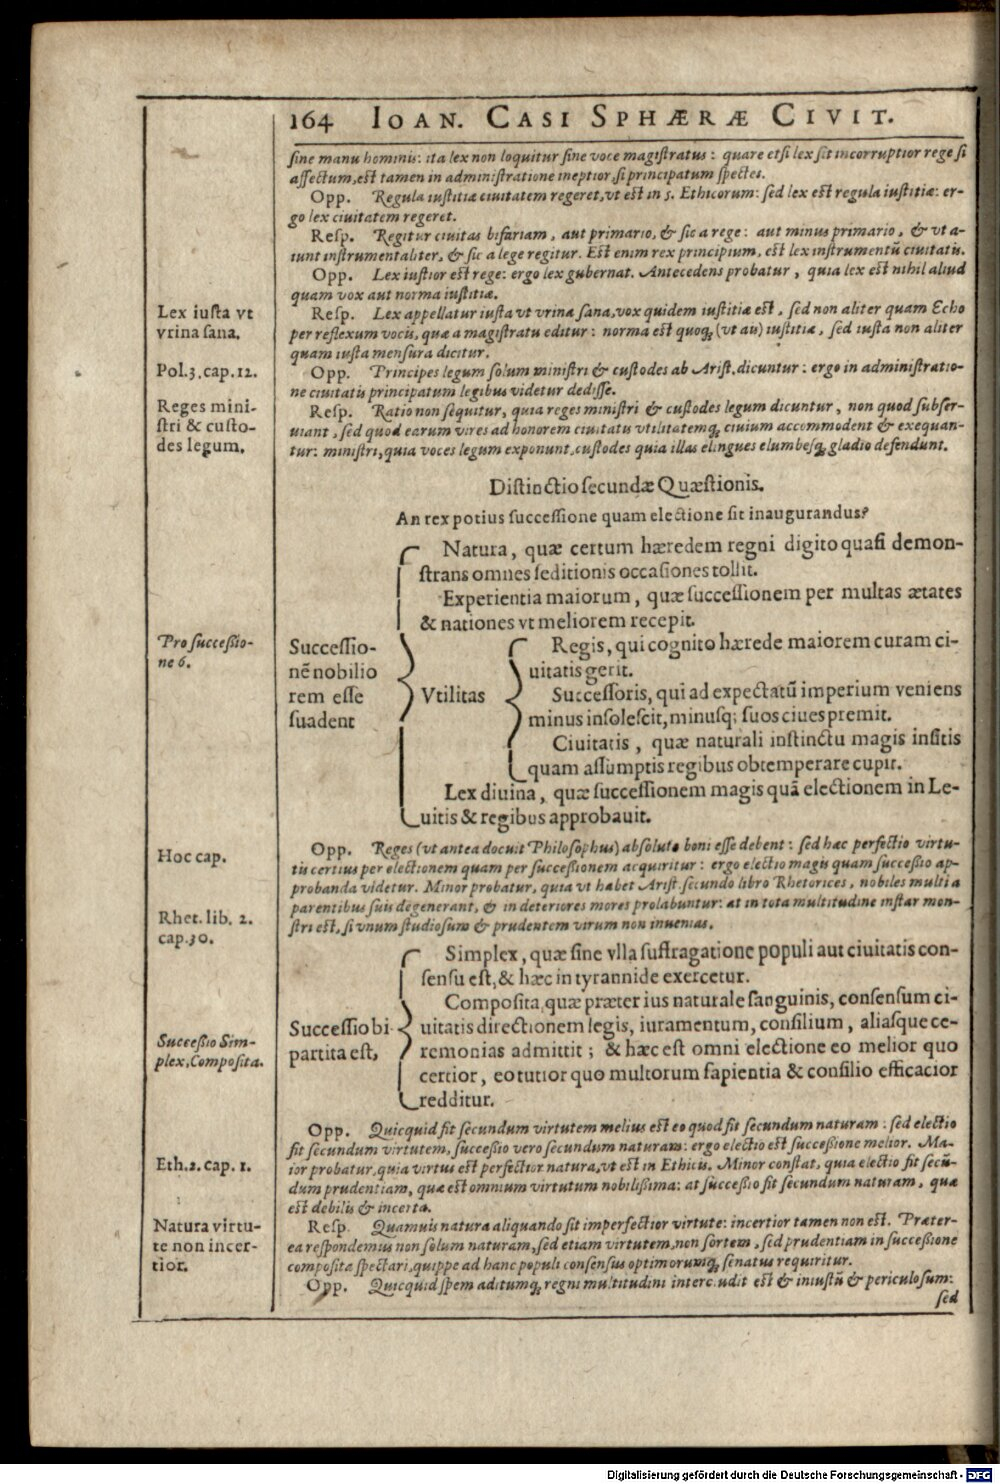 164 IOAN. CASI SPHÆRÆ CIVIT.
sine manu hominis: ita lex non loquitur sine voce magistratus: quare etsi lex sit incorruptior rege si
affectum, est tamen in administratione ineptior, si principatum spectes.
Opp. Regula iustitiæ ciuitatem regeret, vt est in 5. Ethicorum: sed lex est regula iustitiæ: er-
go lex ciuitatem regeret.
Resp. Regitur ciuitas bifariam, aut primario, & sic a rege: aut minus primario, & vt a-
iunt instrumentaliter, & sic a lege regitur. Est enim rex principium, est lex instrumentũ ciuitatis.
Opp. Lex iustior est rege: ergo lex gubernat. Antecedens probatur, quia lex est nihil aliud
quam vox aut norma iustitiæ.
Lex iusta vt
vrina sana.
Resp. Lex appellatur iusta vt vrina sana, vox quidem iustitiæ est, sed non aliter quam Echo
per reflexum vocis, quæ a magistratu editur: norma est quoq; (vt ais) iustitiæ, sed iusta non aliter
quam iusta mensura dicitur.
Pol.3.cap.12.
Opp. Principes legum solum ministri & custodes ab Arist. dicuntur: ergo in administratio-
ne ciuitatis principatum legibus videtur dedisse.
Reges mini-
stri & custo-
des legum.
Resp. Ratio non sequitur, quia reges ministri & custodes legum dicuntur, non quod subser-
uiant, sed quod earum vires ad honorem ciuitatis vtilitatemq; ciuium accommodent & exequan-
tur: ministri, quia voces legum exponunt, custodes quia illas elingues elumbesq; gladio defendunt.
Distinctio secundæ Quæstionis.
An rex potius successione quam electione sit inaugurandus?
Pro successio-
ne 6.
Successio-
nẽ nobilio
rem esse
suadent
Natura, quæ certum hæredem regni digito quasi demon-
strans omnes seditionis occasiones tollit.
Experientia maiorum, quæ successionem per multas ætates
& nationes vt meliorem recepit.
Vtilitas
Regis, qui cognito hærede maiorem curam ci-
uitatis gerit.
Successoris, qui ad expectatũ imperium veniens
minus insolescit, minusq; suos ciues premit.
Ciuitatis, quæ naturali instinctu magis insitis
quam assumptis regibus obtemperare cupit.
Lex diuina, quæ successionem magis quã electionem in Le-
uitis & regibus approbauit.
Hoc cap.
Opp. Reges (vt antea docuit Philosophus) absolute boni esse debent: sed hæc perfectio virtu-
tis certius per electionem quam per successionem acquiritur: ergo electio magis quam successio ap-
probanda videtur. Minor probatur, quia vt habet Arist. secundo libro Rhetorices, nobiles multi a
parentibus suis degenerant, & in deteriores mores prolabuntur: at in tota multitudine instar mon-
stri est, si vnum studiosum & prudentem virum non inuenias.
Rhet. lib. 2.
cap.30.
Successio Sim-
plex, Composita.
Successio bi-
partita est,
Simplex, quæ sine vlla suffragatione populi aut ciuitatis con-
sensu est, & hæc in tyrannide exercetur.
Composita, quæ præter ius naturale sanguinis, consensum ci-
uitatis directionem legis, iuramentum, consilium, aliasque ce-
remonias admittit; & hæc est omni electione eo melior quo
certior, eo tutior quo multorum sapientia & consilio efficacior
redditur.
Opp. Quicquid fit secundum virtutem melius est eo quod fit secundum naturam: sed electio
fit secundum virtutem, successio vero secundum naturam: ergo electio est successione melior. Ma-
ior probatur, quia virtus est perfectior natura, vt est in Ethicis. Minor constat, quia electio fit secũ-
dum prudentiam, quæ est omnium virtutum nobilissima: at successio fit secundum naturam, quæ
est debilis & incerta.
Eth.2. cap. 1.
Natura virtu-
te non incer-
tior.
Resp. Quamuis natura aliquando sit imperfectior virtute: incertior tamen non est. Præter-
ea respondemus non solum naturam, sed etiam virtutem, non sortem, sed prudentiam in successione
composita spectari, quippe ad hanc populi consensus optimorumq; senatus requiritur.
Opp. Quicquid spem aditumq; regni multitudini intercludit est & iniustũ & periculosum:
sed
Digitalisierung gefördert durch die Deutsche Forschungsgemeinschaft - DFG